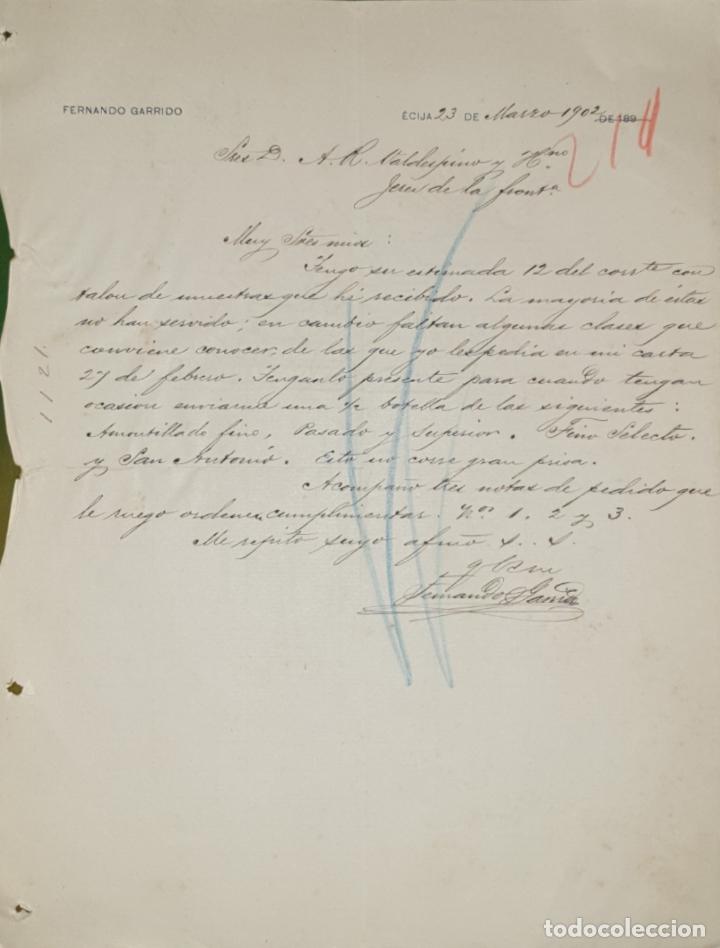 FERNANDO GARRIDO
ÉCIJA 23 DE Marzo 1902 DE 189
214
Sres D. A. R. Valdespino y Hno
Jerez de la Fronta
Muy Sres mios:
Tengo su estimada 12 del corrte con
talon de muestras que hé recibido. La mayoria de éstas
no han servido; en cambio faltan algunas clases que
conviene conocer, de las que yo les pedia en mi carta
27 de febrero. Tenganlo presente para cuando tengan
ocasion enviarme una ½ botella de las siguientes:
Amontillado fino, Pasado y Superior. Fino Selecto
y San Antonio. Esto no corre gran prisa.
Acompaño tres notas de pedido que
le ruego ordenen cumplimentar. Nos 1. 2 y 3.
Me repito suyo afmo S. S.
q b s m
Fernando Garrido
1121.
todocoleccion.net